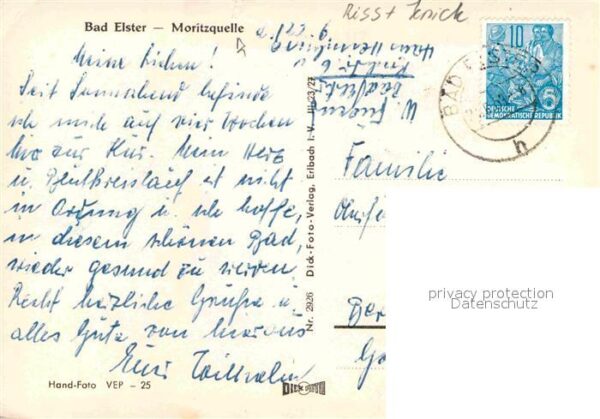 Riss + Knick
Bad Elster — Moritzquelle
Meine Lieben!
Seit Sonnabend befinde
ich mich auf vier Wochen
hier zur Kur. Mein Herz
u. Blutkreislauf ist nicht
in Ordnung u. ich hoffe,
in diesem schönen Bad,
wieder gesund zu werden.
Recht herzliche Grüße u.
alles Gute von hieraus
Euer Wilhelm
Hand-Foto VEP – 25
Nr. 2926 Dick-Foto-Verlag, Erlbach i. V. III-23/27
DICK
10
5
DEUTSCHE
DEMOKRATISCHE REPUBLIK
BAD ELSTER
h
Familie
Ber
privacy protection
Datenschutz